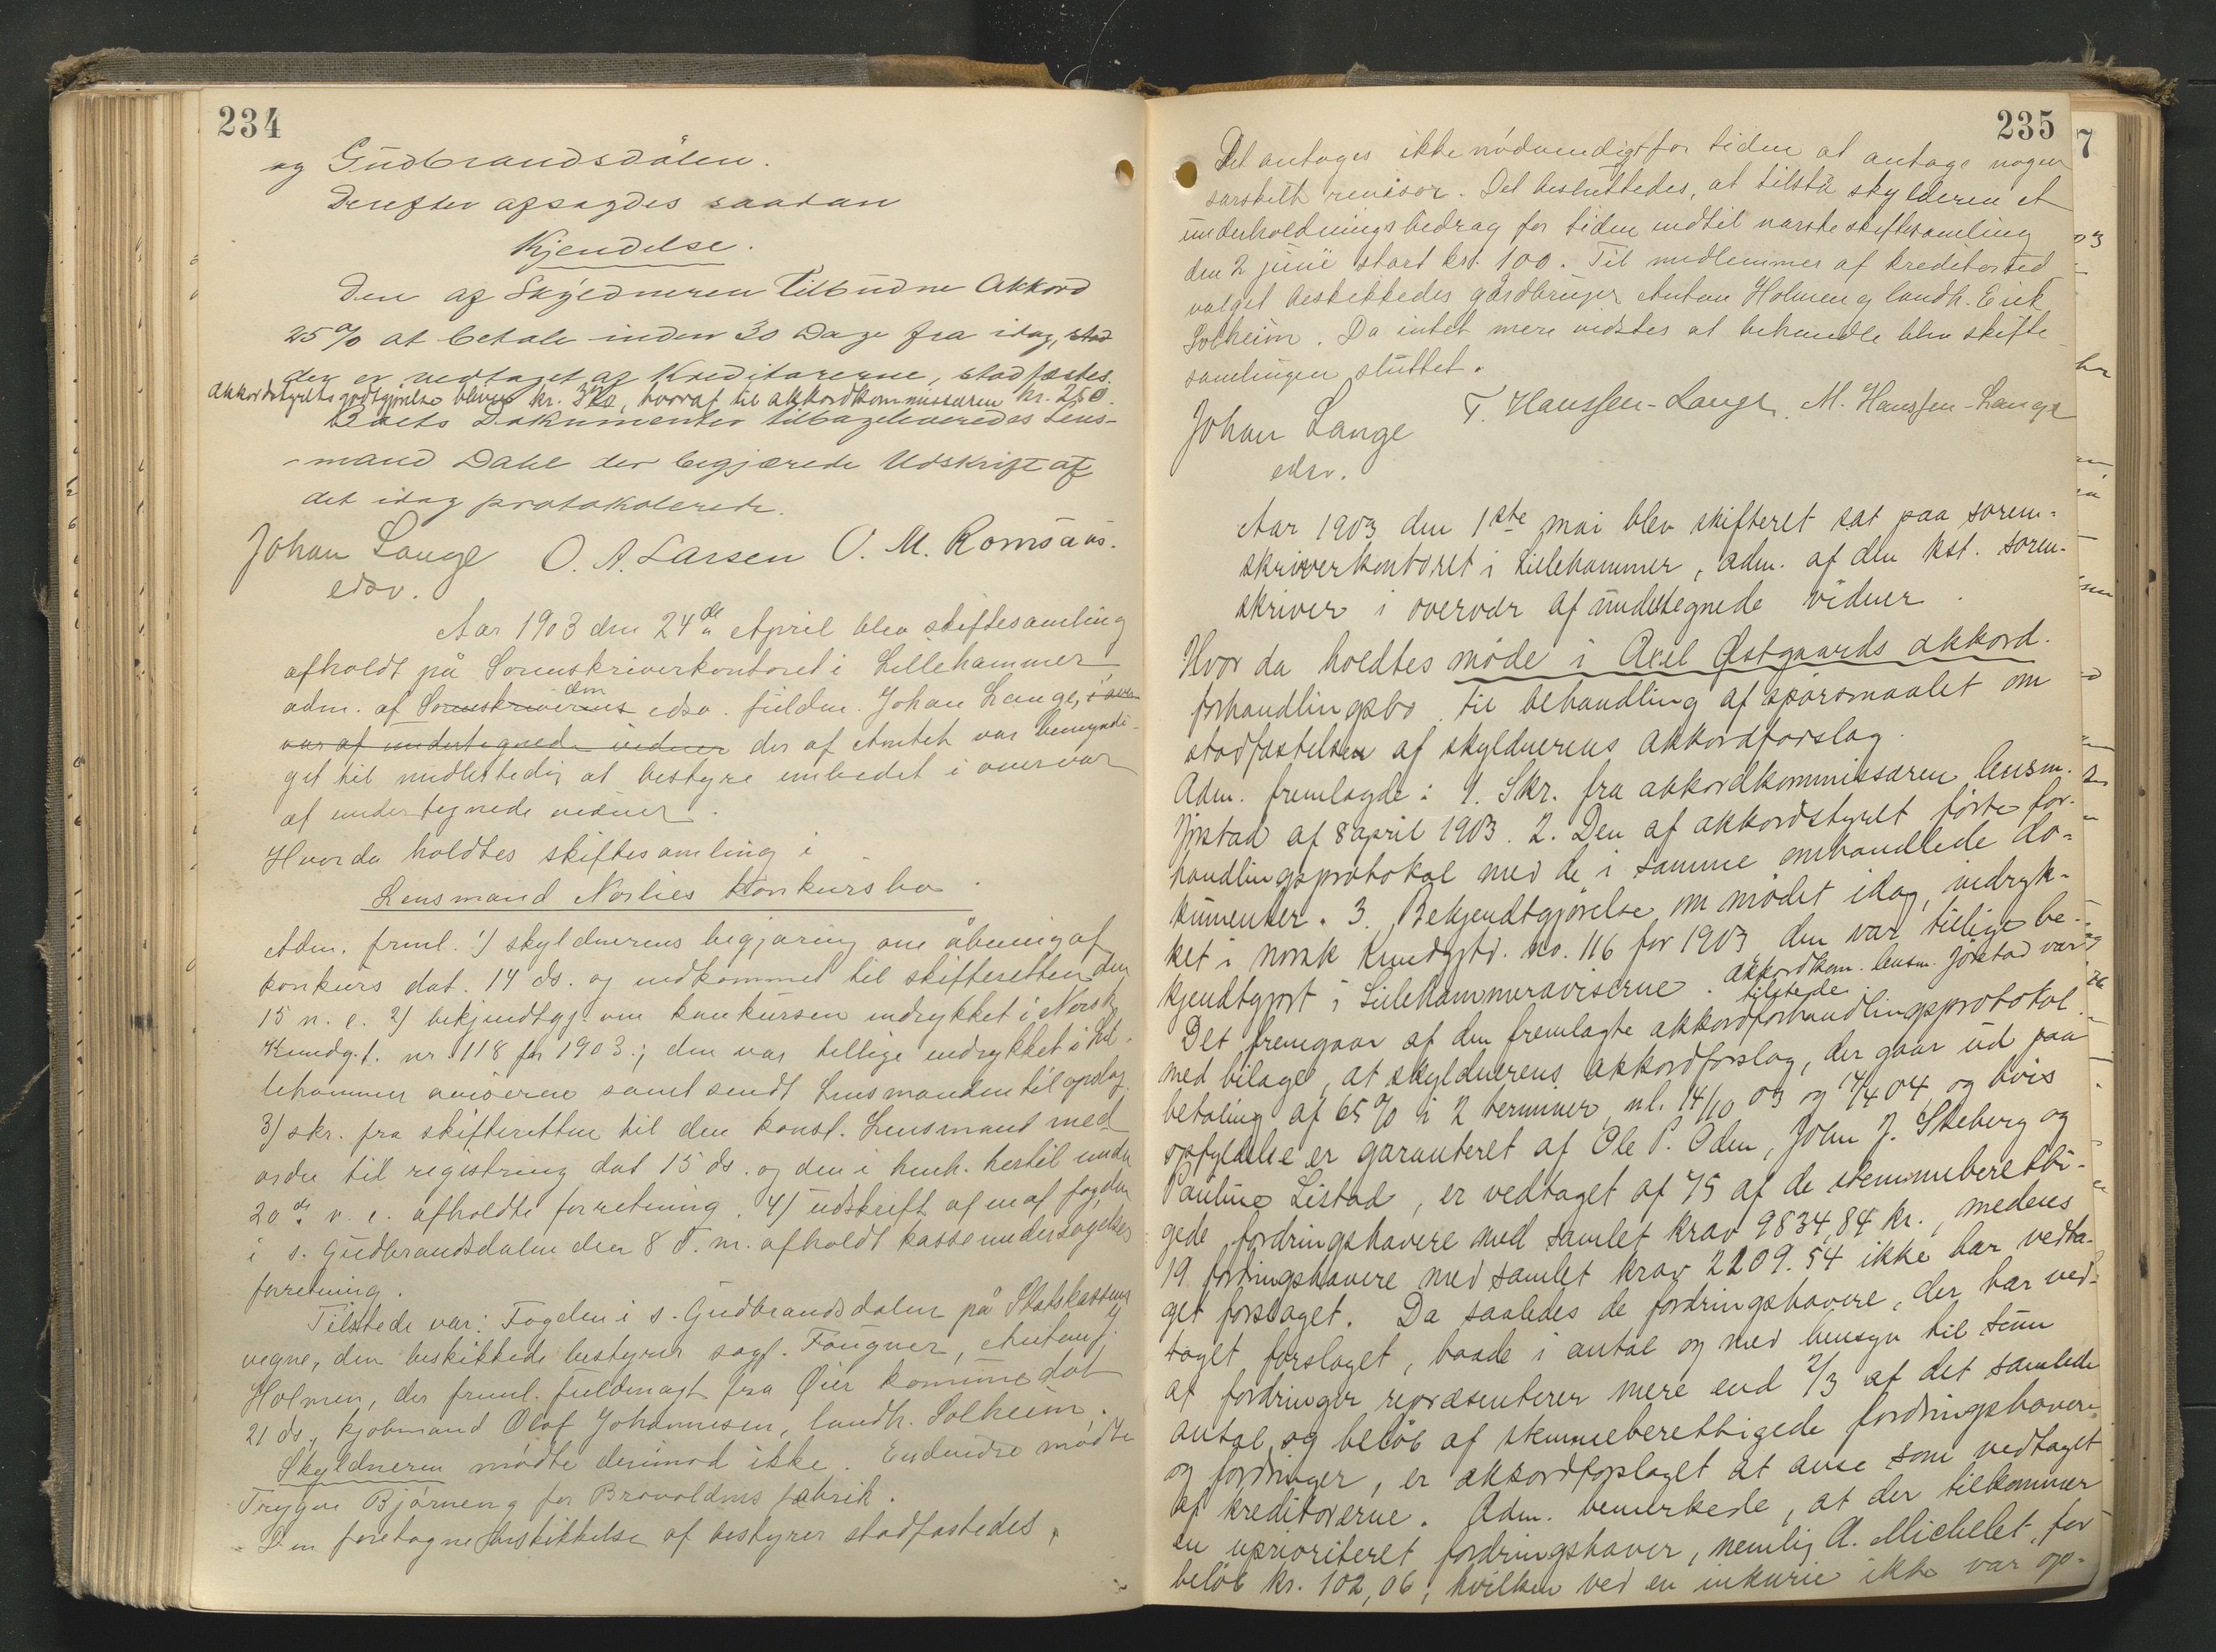 234
og Gudbrandsdålen.
Derefter afsagdes saadan
Kjendelse.
Den af Skyldneren Tilbudne Akkord
25 % at betale inden 30 Dage fra idag, stad
der er vedtaget af Kreditorerne, stadfæstes.
Akkordstyrets godtgjørelse bliver kr. 320, hvoraf til akkordkommissæren kr. 250.
Boets Dokumenter tilbageleveredes Lens-
mand Dahl der begjærede Udskrift af
det idag protokolerede.
Johan Lange O. A. Larsen O. M. Romsaas.
edsv.
Aar 1903 den 24de April blev skiftesamling
afholdt på Sorenskriverkontoret i Lillehammer
adm. af Sorenskriverens den edsv. fuldm. Johan Lange, i over
vær af undertegnede vidner der af Amtet var bemyndi-
get til midlertidig at bestyre embedet i overvær
af undertegnede vidner.
Hvor da holdtes skiftesamling i
Lensmand Norlies konkursbo.
Adm. freml. 1) skyldnerens begjæring om åbning af
konkurs dat. 14 ds. og indkommet til skifteretten den
15 n. e. 2) bekjendtgj. om konkursen indrykket i Norsk
Kundg.t. nr. 118 for 1903.; den var tillige indrykket i Lil-
lehammer aviserne samt sendt Lensmanden til opslag.
3) skr. fra skifteretten til den konst. Lensmand med
ordre til registring dat 15 ds. og den i henh. hertil under
20de s. e. afholdte forretning. 4) udskrift af en af fogden
i s. Gudbrandsdalen den 8 d. m. afholdt kasseundersøgelses
forretning.
Tilstede var: Fogden i s. Gudbrandsdalen på Statskassens
vegne, den beskikkede bestyrer sagf. Fougner, Anton
Holmen, der freml. fuldmagt fra Øier komune dat
21 ds., kjøbmand Olaf Johannesen, landh. Solheim.
Skyldneren mødte derimod ikke. Endvidre mødte
Trygve Bjørneng for Brovoldens fabrik.
Den foretagne beskikkelse af bestyrer stadfæstedes.
235
Det antages ikke nødvendigt for tiden at antage nogen
særskilt revisor. Det besluttedes, at tilstå skylderen et
underholdningsbedrag for tiden indtil næste skiftesamling
den 2 juni stort kr. 100. Til medlemmer af kreditorud
valget beskikkedes gårdbruger Anton Holmen og landh. Erik
Solheim. Da intet mere vidstes at behandle blev skifte
samlingen sluttet.
Johan Lange T. Hanssen-Lange. M. Hanssen-Lange
edsv.
Aar 1903 den 1ste mai blev skifteret sat paa soren-
skriverkontoret i Lillehammer, adm. af den kst. soren-
skriver i overvær af undertegnede vidner.
Hvor da holdtes møde i Axel Østgaards akkord-
forhandlingsbo til behandling af spørsmaalet om
stadfæstelsen af skyldnerens akkordforslag.
Adm. fremlagde: 1. Skr. fra akkordkommissæren lensm.
Jørstad af 8 april 1903. 2. Den af akkordstyret førte for-
handlingsprotokol med de i samme omhandlede do-
kumenter. 3. Bekjendtgjørelse om mødet idag, indryk-
ket i norsk Kundgtd. no. 116 for 1903 den var tillige be-
kjendtgjort i Lillehammeraviserne. Akkordkom. lensm. Jørstad var
tilstede.
Det fremgaar af den fremlagte akkordforhandlingsprotokol
med bilage, at skyldnerens akkordforslag, der gaar ud paa
betaling af 65 % i 2 terminer, nl. 14/10 03 og 14/4 04 og hvis
opfyldelse er garanteret af Ole P. Oden, John J. Skeberg og
Pauline Listad, er vedtaget af 75 af de stemmeberetti-
gede fordringshavere med samlet krav 9834,84 kr., medens
19 fordringshavere med samlet krav 2209.54 ikke har vedta-
get forslaget. Da saaledes de fordringshavere, der har ved-
taget forslaget, baade i antal og med hensyn til sum
af fordringer repræsenterer mere end 2/3 af det samlede
antal og beløb af stemmeberettigede fordringshavere
og fordringer, er akkordforslaget at anse som vedtaget
af kreditorerne. Adm. bemerkede, at der tilkommer
en uprioriteret fordringshaver, nemlig A. Michelet, for
beløb kr. 102,06, hvilken ved en inkurie ikke var op-